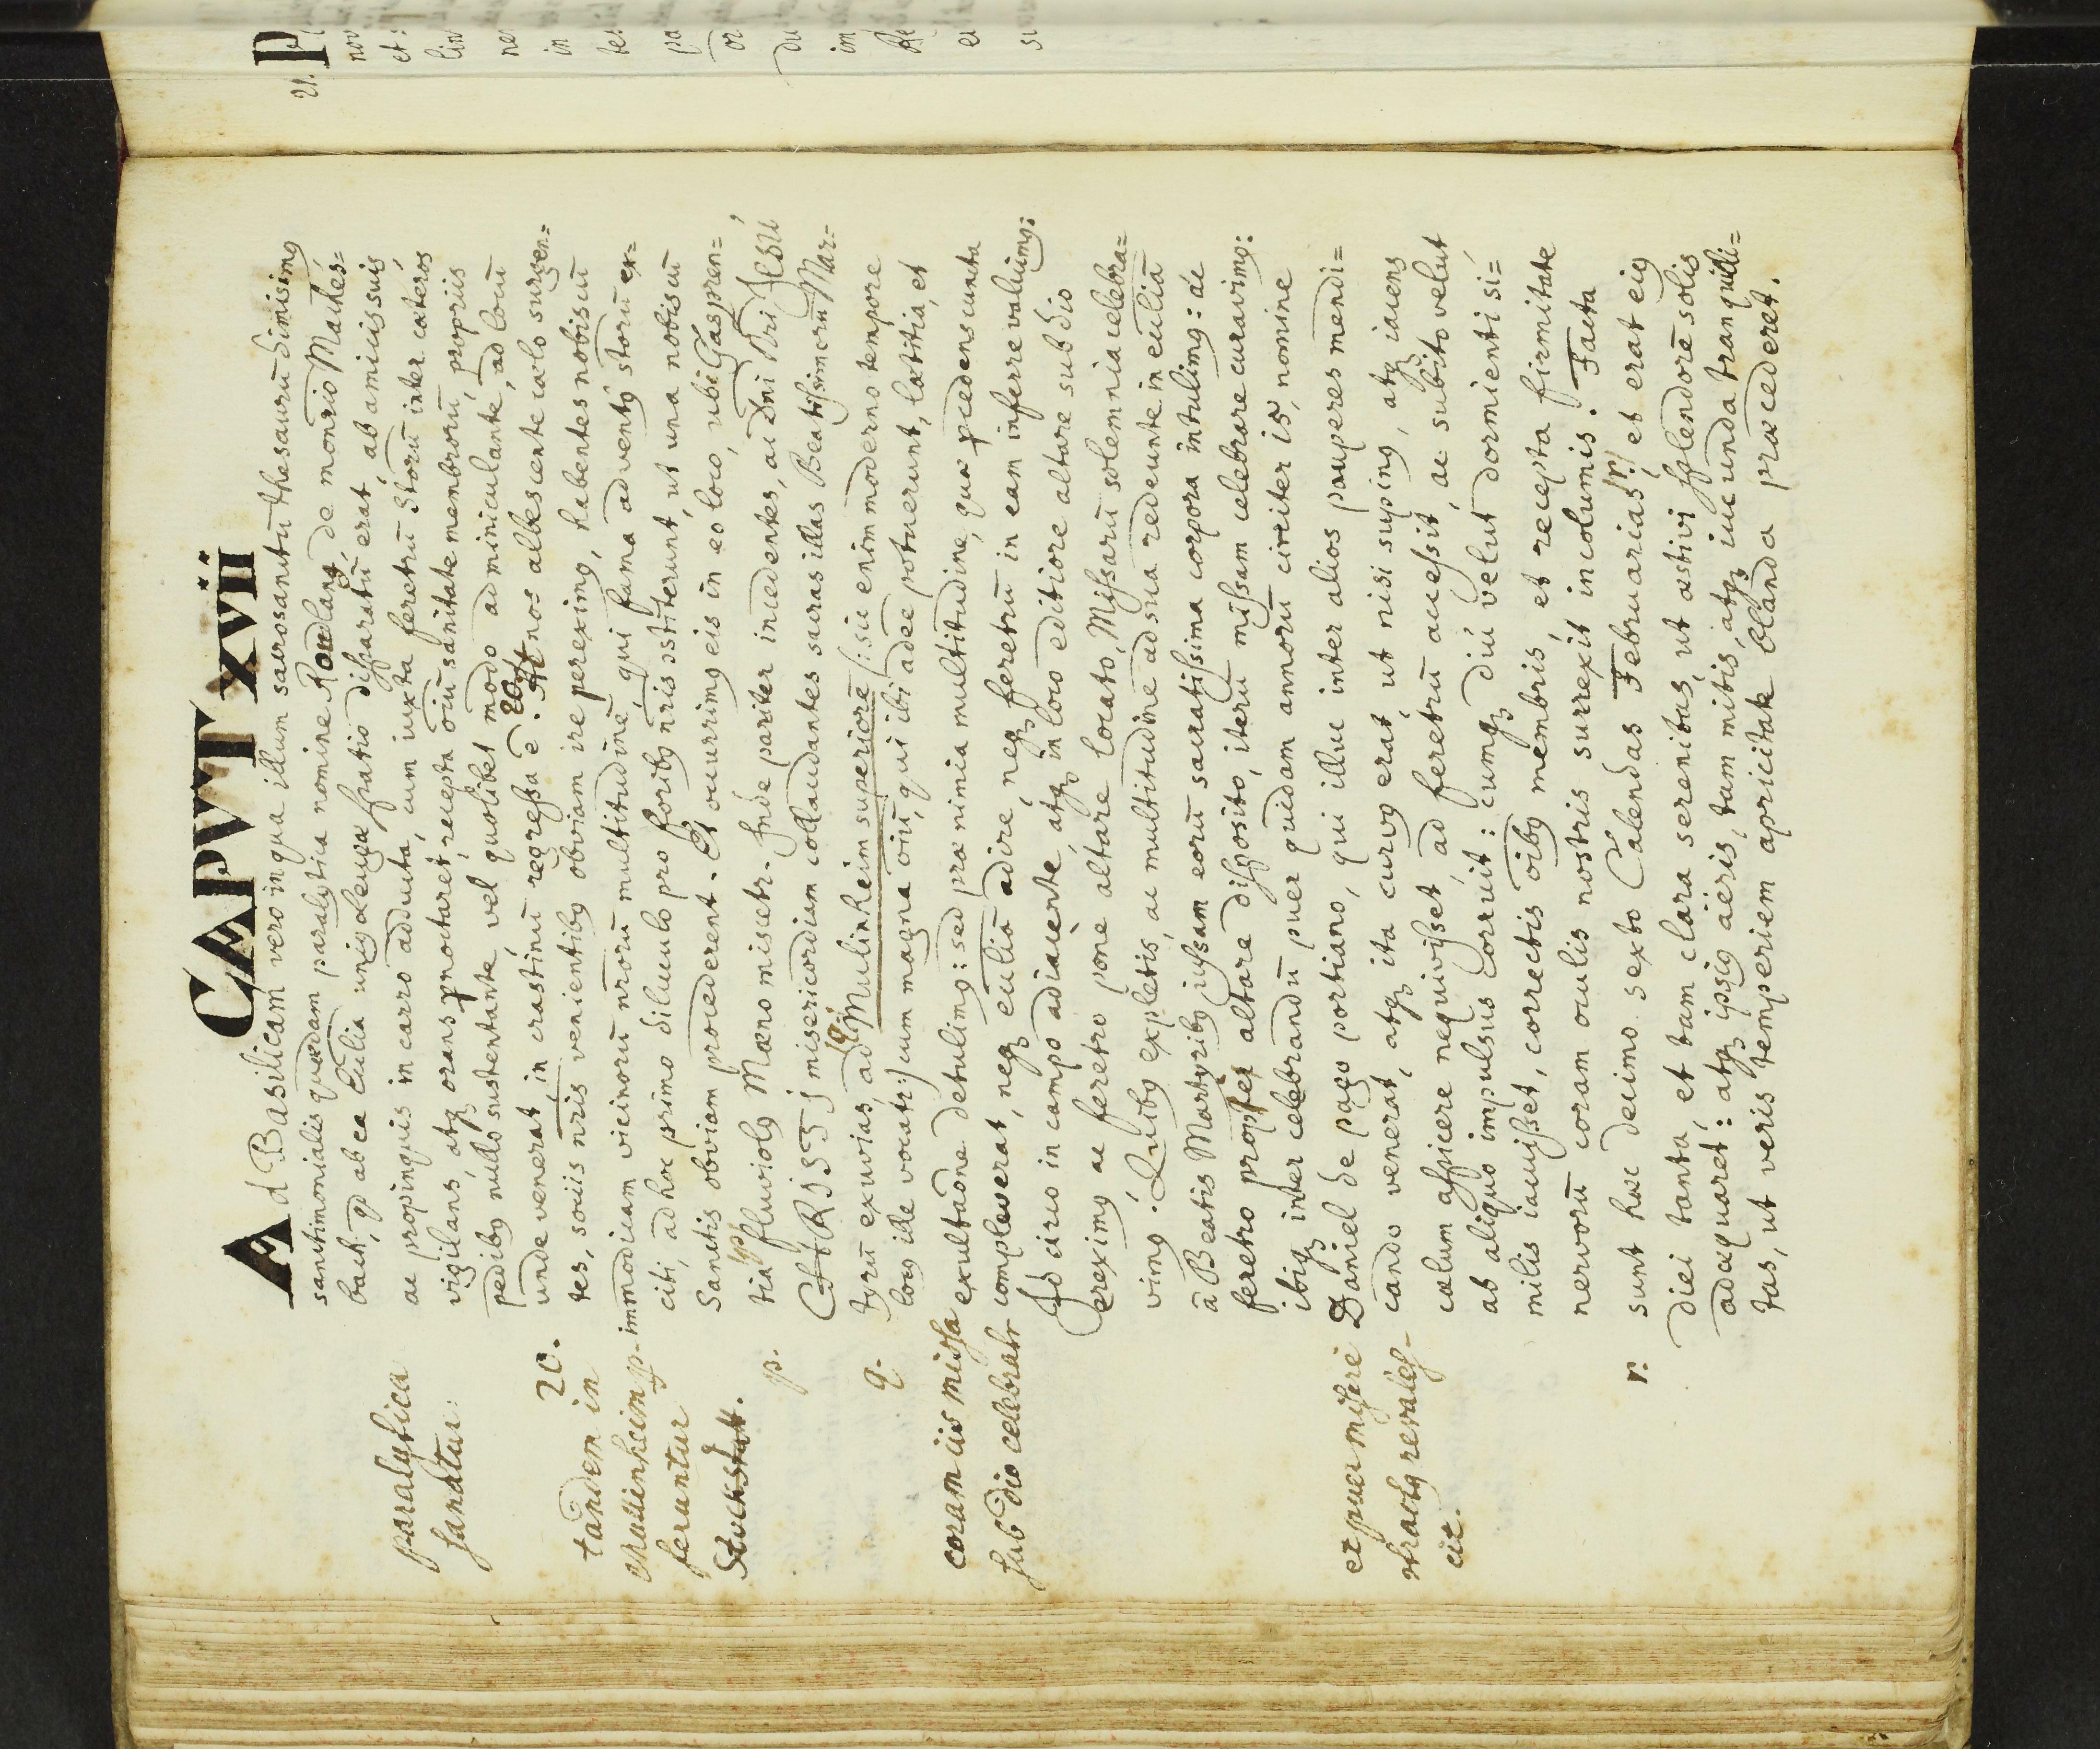 CAPVT XVII
Ad Basilicam vero in qua illum sacrosanctū thesaurū dimisimꝰ
sanctimonialis quædam paralytica nomine Rodlang, de monrio Maches=
bach, qd ab ea Ecclia unius leugæ spatio disparatū erat, ab amicis suis
ac propinquis in carro adducta, cum iuxta feretrū Stoꝛū inter cæteros
vigilans, atqꝫ orans pnoctaret, recepta oīū sanitate membrorū, propriis
pedibꝰ nullo sustentante, vel quolibet modo adminiculante, ad locū
unde venerat, in crastinū regressa ē. 20. At nos albescente cælo surgen=
tes, sociis nr̄is venientibꝰ obviam ire pereximꝰ, habentes nobiscū
immodicam vicinorū nr̄orū multitudinē, qui fama adventꝰ Stoꝛū ex=
citi, ad hoc primo diluculo pro foribꝰ nr̄is ↄstiterunt, ut una nobiscū
Sanctis obviam procederent. Et occurrimꝰ eis in eo loco, ubi Gaspren=
tia (p) fluviolꝰ Mæno miscetr. Inde pariter incedentes, ac Dn̄i Nr̄i JESU
CHRISTI misericordiam collaudantes sacras illas Beatissimorū Mar=
tyrū exuvias, ad (q) Mulinheim superiorē /:sic enim moderno tempore
locꝰ ille vocatr:/ cum magna oīū, qui ibi adeē potuerunt, lætitia, et
exultaōne detulimꝰ: sed præ nimia multitudine, quæ pcedens cuncta
compleverat, neqꝫ eccliā adire, neqꝫ feretrū in eam inferre valuimꝰ:
Id circo in campo adiacente, atqꝫ in loco editiore altare sub dio
ereximꝰ ac feretro ponè altare locato, Missarū solennia celebra=
vimꝰ. Quibꝰ expletis, ac multitudine ad sua redeunte in eccliā
à Beatis Martyribꝰ iussam eorū sacratissima corpora intulimꝰ: ac
feretro propter altare disposito, iterū missam celebrare curavimꝰ:
ibiqꝫ inter celebrandū puer quidam annorū circiter 15, nomine
Daniel de pago portiano, qui illuc inter alios pauperes mendi=
cando venerat, atqꝫ ita curvꝰ erat, ut nisi supinꝰ, atqꝫ iacens
cælum aspicere nequivisset, ad feretrū accessit, ac subito velut
ab aliquo impulsus corruit: cumqꝫ diú velut dormienti si=
milis iacuisset, correctis oībꝰ membris, et recepta firmitate
nervorū coram oculis nostris surrexit incolumis. Facta
sunt hæc decimo sexto Calendas Februarias (r), et erat eiꝰ
diei tanta, et tam clara serenitas, ut æstivi splendorē solis
adæquaret: atqꝫ ipsiꝰ aëris, tam mitis, atqꝫ iucunda tranquilli=
tas, ut veris temperiem apricitate blanda præcederet.
paralytica
sanatur:
20.
tandem in
Mulinheim p.
feruntur
p.
q.
coram iis missa
sub dio celebratr
et puer miserè
ↄtractꝰ revales-
cit.
r.
21. P